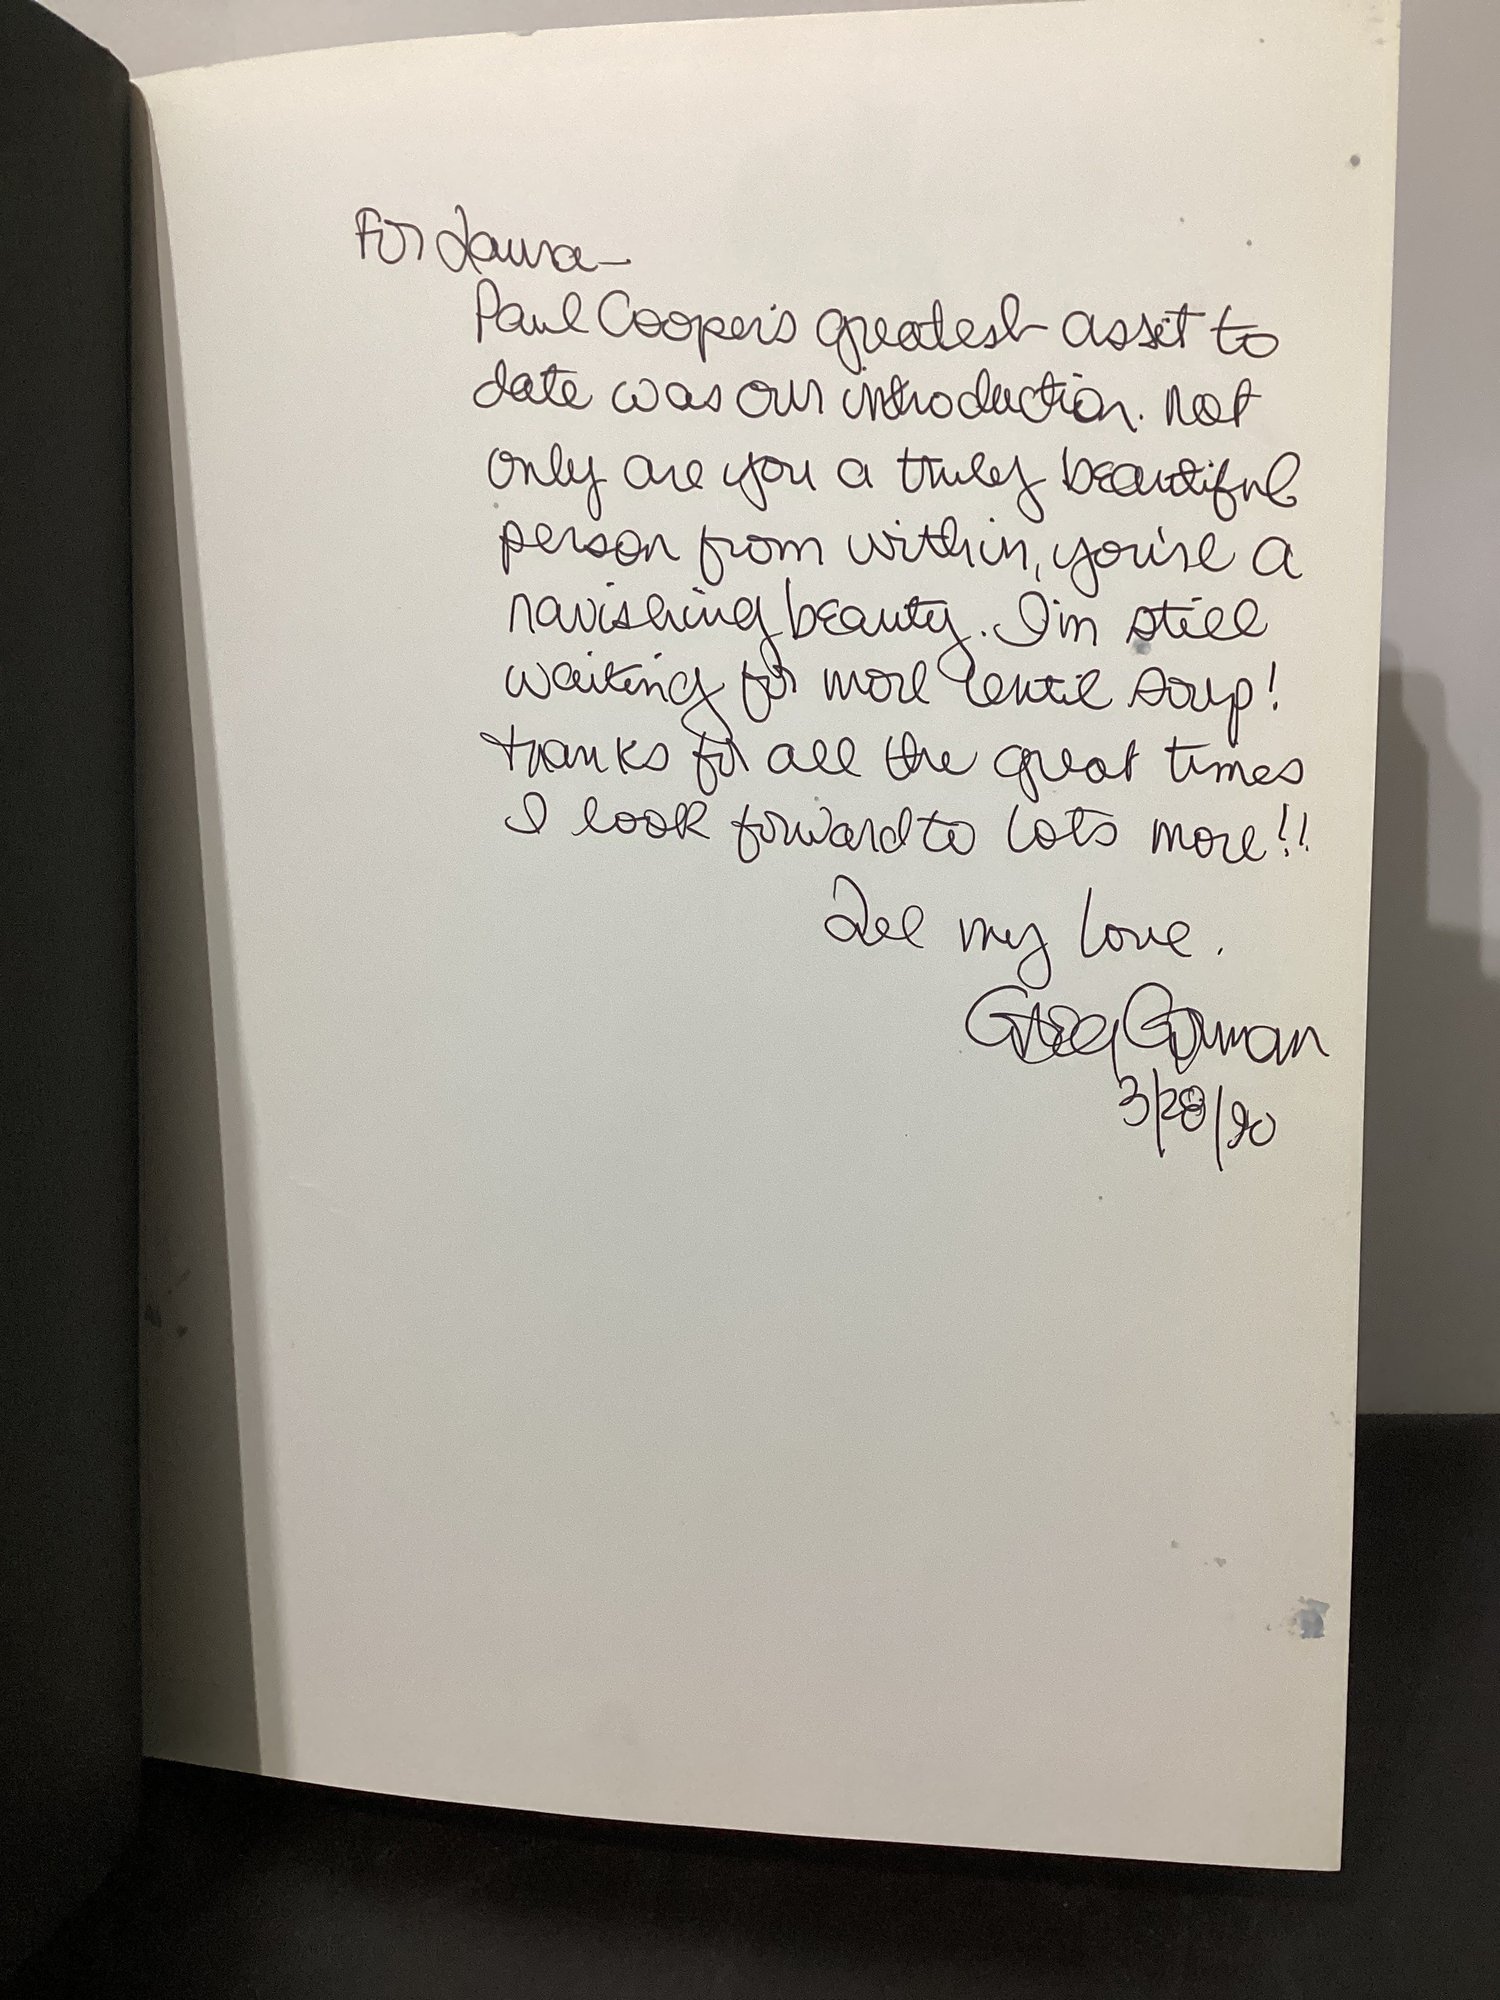 For Laura–
Paul Cooper's greatest asset to
date was our introduction. Not
only are you a truly beautiful
person from within, you're a
ravishing beauty. I'm still
waiting for more lentil soup!
thanks for all the great times
I look forward to lots more!!
All my love.
Greg Gorman
3/28/90